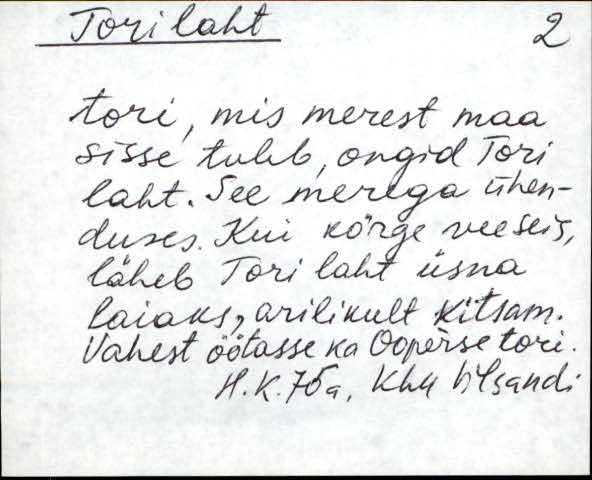 Tori laht 2
tori, mis merest maa
sisse tuleb, ongid Tori
laht. See merega ühen-
duses. Kui kõrge veeseis,
läheb Tori laht üsna
laiaks, arilikult kitsam.
Vahest öötasse ka Oopèrse tori.
H.K. 75a, Khk